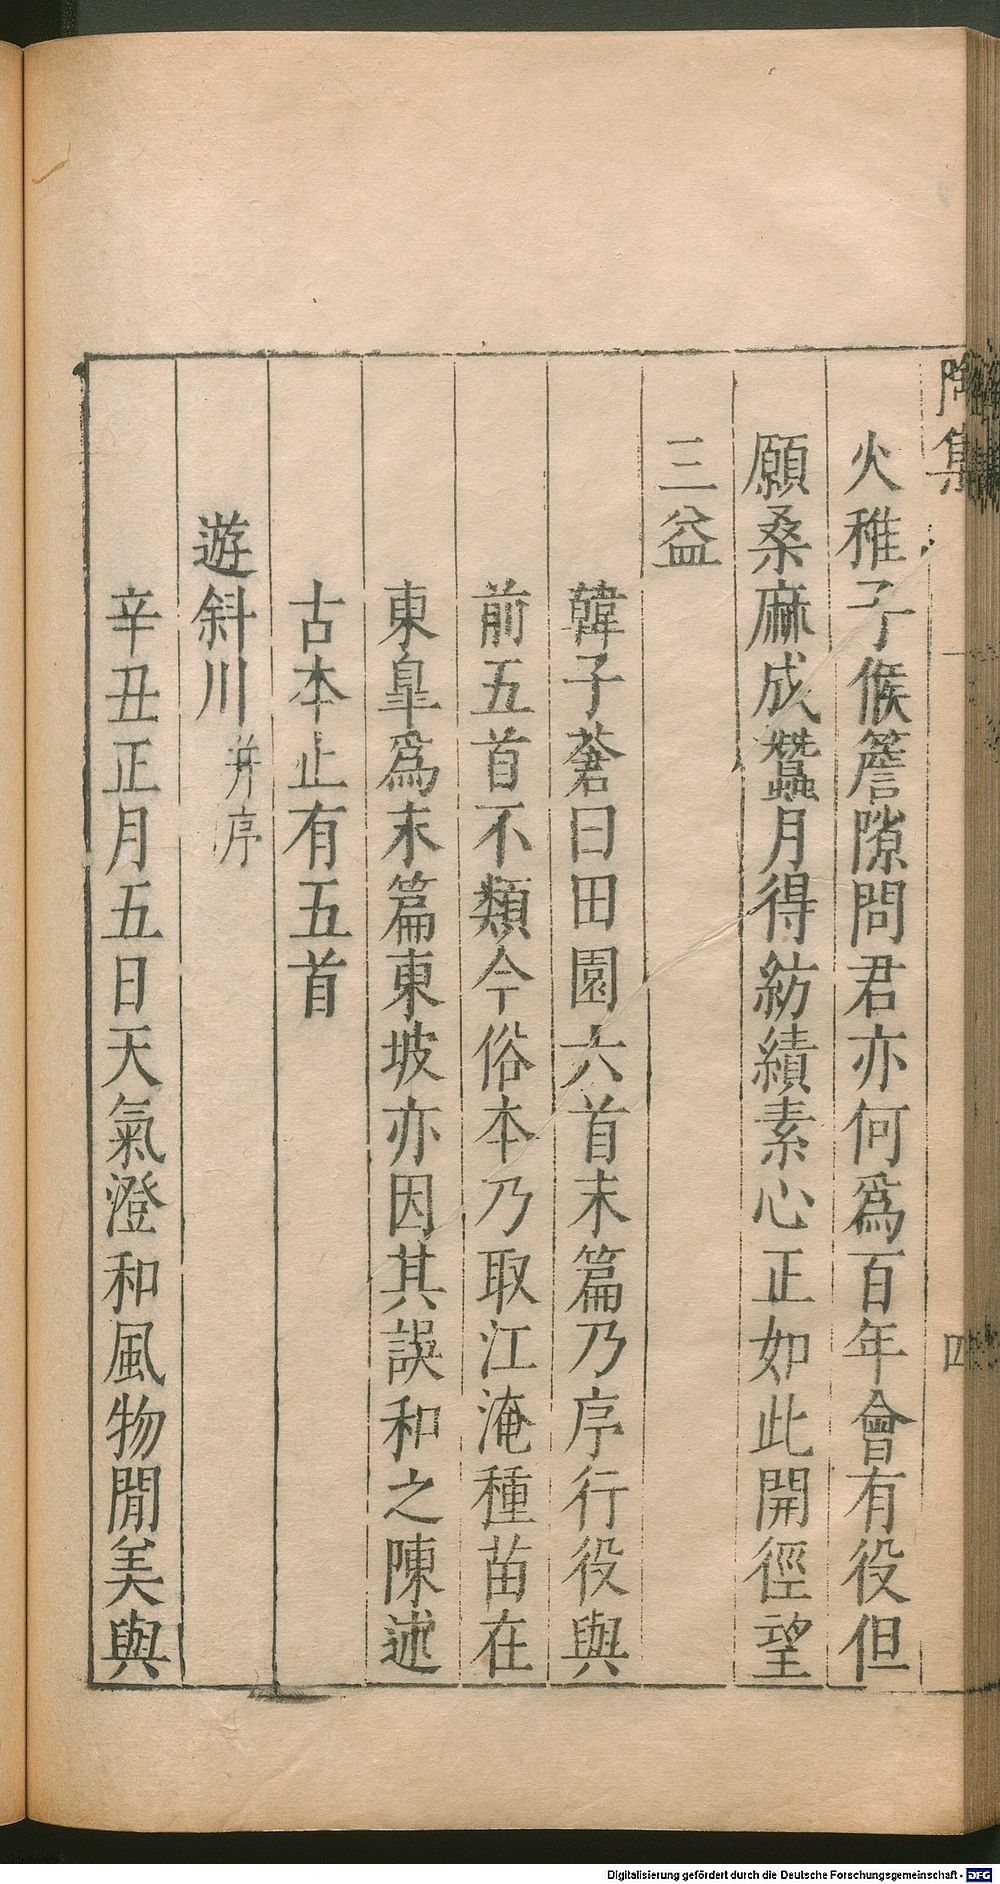 陶集
四
火稚子候簷隙問君亦何為百年會有役但
願桑麻成蠶月得紡績素心正如此開徑望
三益
韓子蒼曰田園六首末篇乃序行役與
前五首不類今俗本乃取江淹種苗在
東臯爲末篇東坡亦因其誤和之陳述
古本止有五首
遊斜川并序
辛丑正月五日天氣澄和風物閒美與
Digitalisierung gefördert durch die Deutsche Forschungsgemeinschaft - DFG